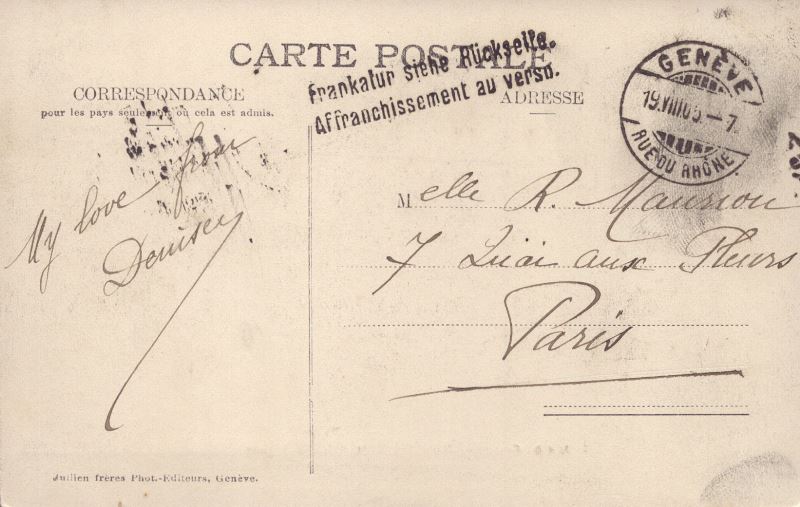 CARTE POSTALE
Frankatur siehe Rückseite.
Affranchissement au verso.
GENÈVE
19.VIII05-7
RUE DU RHÔNE
CORRESPONDANCE
pour les pays seulement où cela est admis.
ADRESSE
My love from
Denise
Melle R. Maurion
7 Quai aux Fleurs
Paris
Jullien frères Phot.-Editeurs, Genève.